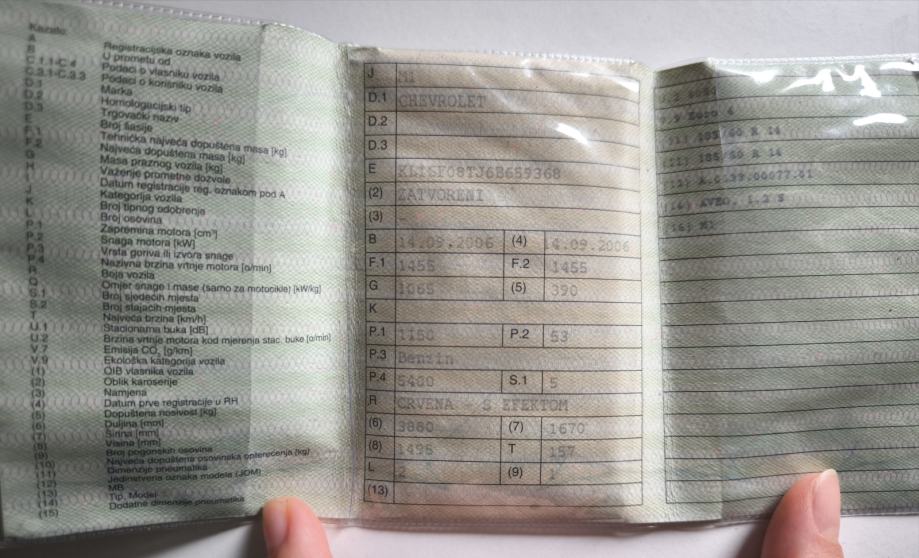 Kazalo:
A Registracijska oznaka vozila
B U prometu od
C.1.1-C.4 Podaci o vlasniku vozila
C.3.1-C.3.3 Podaci o korisniku vozila
D.1 Marka
D.2 Homologacijski tip
D.3 Trgovački naziv
E Broj šasije
F.1 Tehnička najveća dopuštena masa [kg]
F.2 Najveća dopuštena masa [kg]
G Masa praznog vozila [kg]
H Važenje prometne dozvole
I Datum registracije reg. oznakom pod A
J Kategorija vozila
K Broj tipnog odobrenje
L Broj osovina
P.1 Zapremina motora [cm³]
P.2 Snaga motora [kW]
P.3 Vrsta goriva ili izvora snage
P.4 Nazivna brzina vrtnje motora [o/min]
R Boja vozila
Q Omjer snage i mase (samo za motocikle) [kW/kg]
S.1 Broj sjedećih mjesta
S.2 Broj stajaćih mjesta
T Najveća brzina [km/h]
U.1 Stacionarna buka [dB]
U.2 Brzina vrtnje motora kod mjerenja stac. buke [o/min]
V.7 Emisija CO₂ [g/km]
V.9 Ekološka kategorija vozila
(1) OIB vlasnika vozila
(2) Oblik karoserije
(3) Namjena
(4) Datum prve registracije u RH
(5) Dopuštena nosivost [kg]
(6) Duljina [mm]
(7) Širina [mm]
(8) Visina [mm]
(9) Broj pogonskih osovina
(10) Najveća dopuštena osovinska opterećenja [kg]
(11) Dimenzije pneumatika
(12) Jedinstvena oznaka modela (JOM)
(13) MB
(14) Tip, Model
(15) Dodatne dimenzije pneumatika
J M1
D.1 CHEVROLET
D.2
D.3
E KL1SF08TJ6B659368
(2) ZATVORENI
(3) -
B 14.09.2006 (4) 14.09.2006
F.1 1455 F.2 1455
G 1065 (5) 390
K
P.1 1150 P.2 53
P.3 Benzin
P.4 5400 S.1 5
R CRVENA - S EFEKTOM
(6) 3880 (7) 1670
(8) 1495 T 157
L 2 (9) 1
(13)
Euro 4
(11) 185/60 R 14
(11) 185/60 R 14
(14) AVEO, 1.2 S
(16) M1